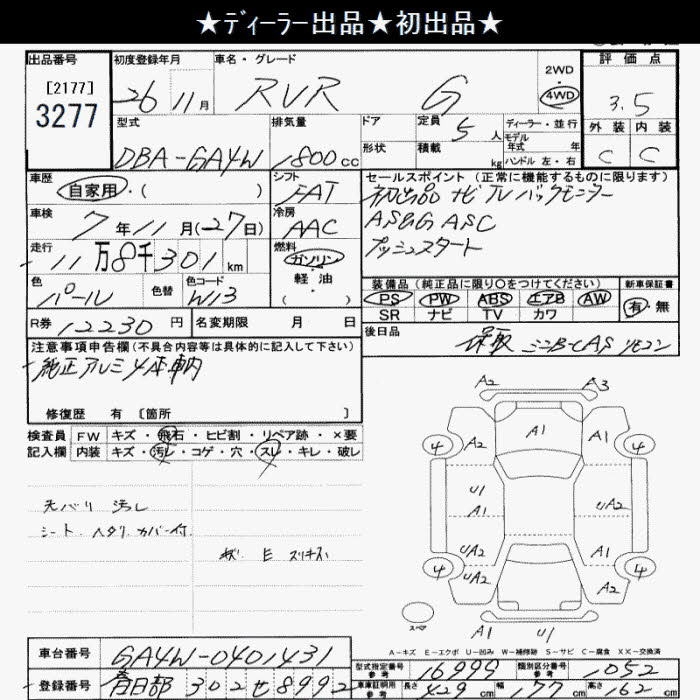 ★ディーラー出品★初出品★
出品番号 初度登録年月 車名・グレード 評価点
[2177]
3277
26 11月 RVR G 2WD 4WD 3.5
型式 排気量 ドア 定員 5人 ディーラー・並行 外装 内装
DBA-GA4W 1800cc 形状 積載 kg モデル年式 年 C C
ハンドル 左・右
車歴 自家用・( ) シフト FAT セールスポイント(正常に機能するものに限ります)
初出品 ナビ TV バックモニター
車検 7年11月(27日) 冷房 AAC AS&G ASC
プッシュスタート
走行 11万8千301km 燃料 ガソリン・軽油・( )
色 パール 色替 色コード W13 装備品(純正品に限り○をつけてください) 新車保証書
PS PW ABS エアB AW 有・無
SR ナビ TV カワ
R券 12230円 名変期限 月 日 後日品
保取 ミニB-CAS リモコン
注意事項申告欄(不具合内容等は具体的に記入して下さい)
純正アルミ4本車輌
修復歴 有 [箇所 ]
検査員 FW キズ・飛石・ヒビ割・リペア跡・×要
記入欄 内装 キズ・汚レ・コゲ・穴・スレ・キレ・破レ
天バリ 汚レ
シート ヘタリ カバー付
E スリキズ
A2 A3
4 A2 A1 A1 4
U1 UA2
UA2 A1
4 UA2 A2 4
スペア A1 U1
A-キズ E-エクボ U-凹み W-補修跡 S-サビ C-腐食 XX-交換済
車台番号 GA4W-0401431
登録番号 春日部 302 せ 8992
型式指定番号 参考 16999 類別区分番号 参考 052
車庫証明用 参考 長さ 429cm 幅 177cm 高さ 162cm